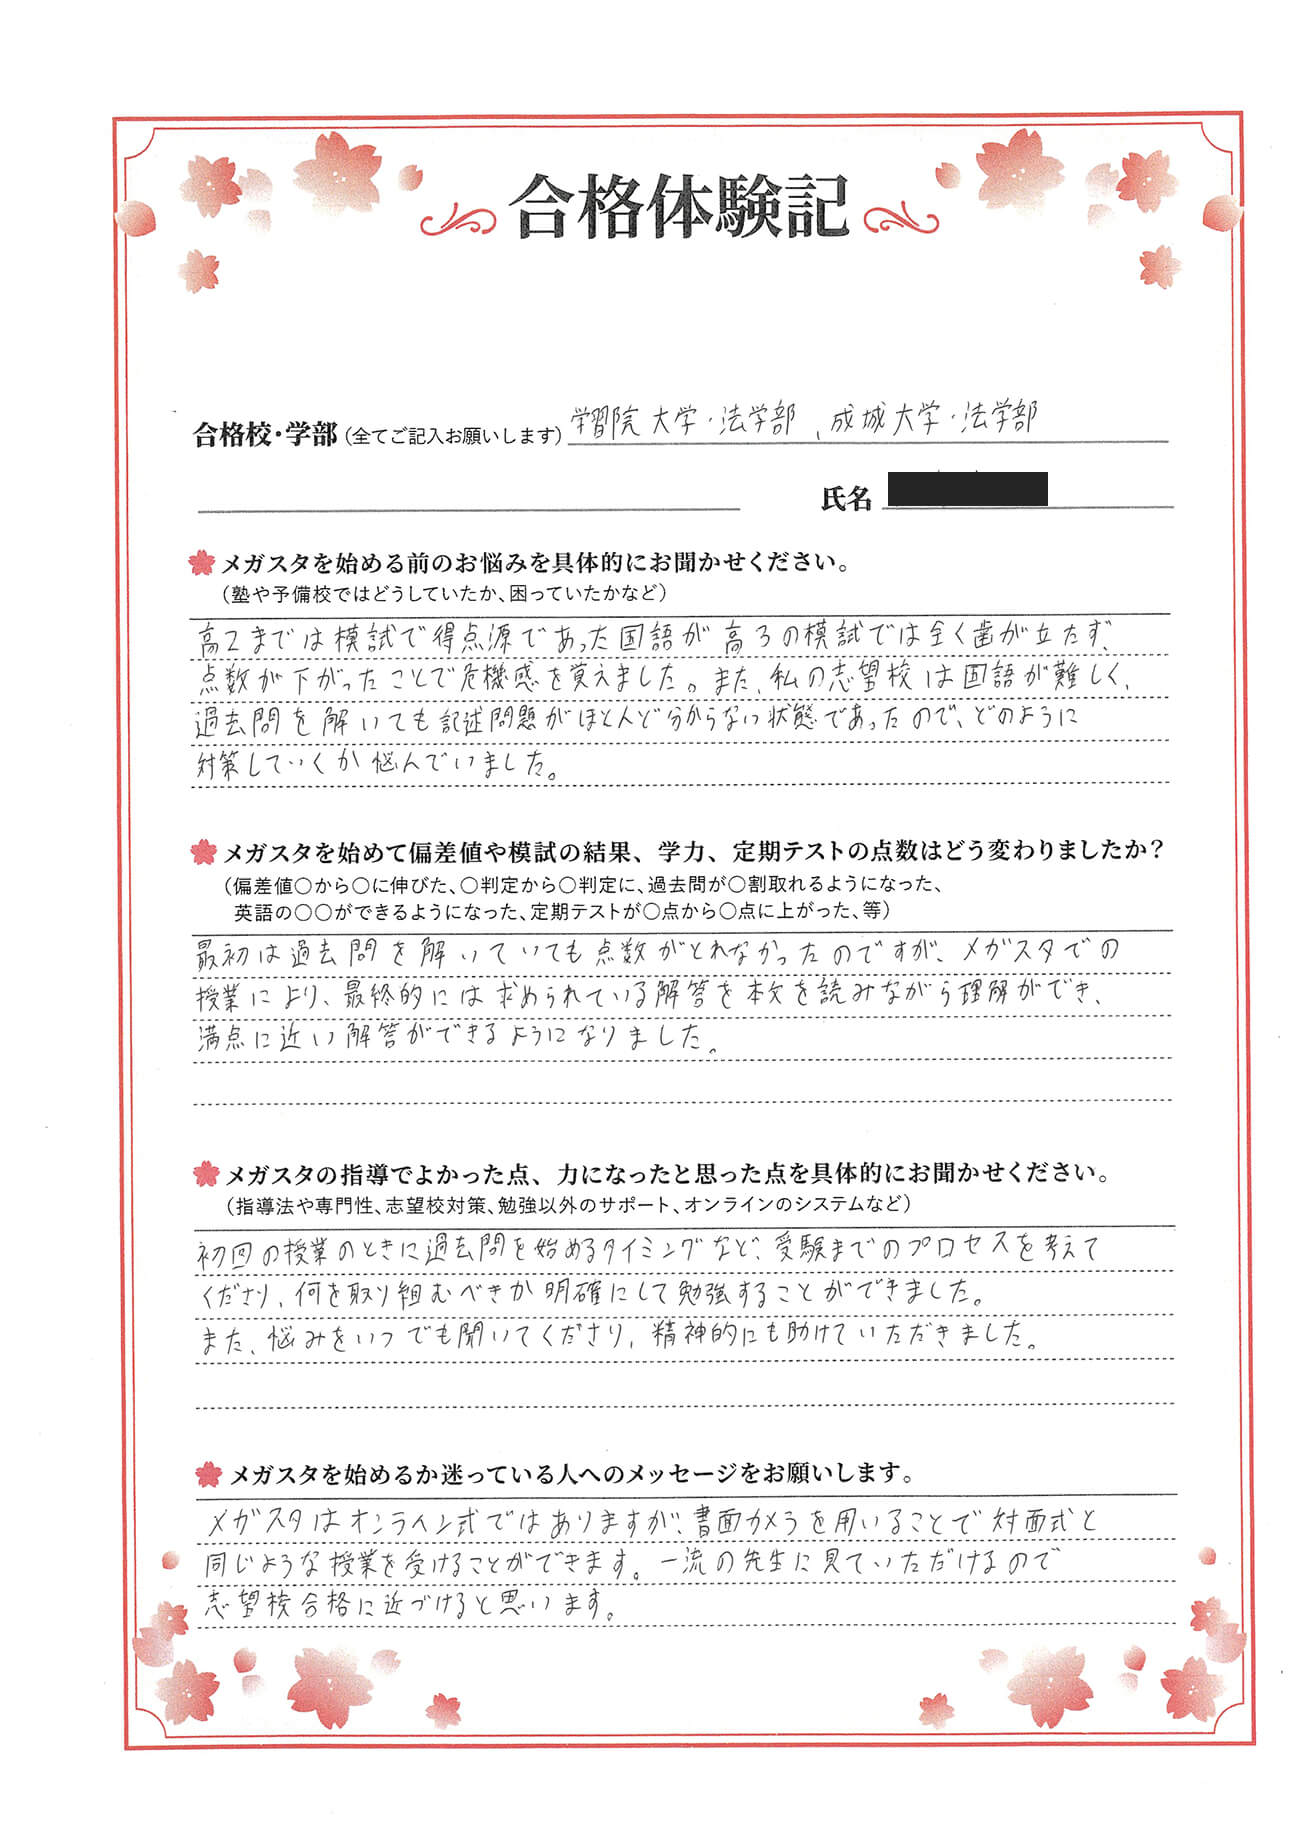 合格体験記
合格校・学部（全てご記入お願いします）学習院大学・法学部、成城大学・法学部
氏名
メガスタを始める前のお悩みを具体的にお聞かせください。
（塾や予備校ではどうしていたか、困っていたかなど）
高2までは模試で得点源であった国語が高3の模試では全く歯が立たず、
点数が下がったことで危機感を覚えました。また、私の志望校は国語が難しく、
過去問を解いても記述問題がほとんど分からない状態であったので、どのように
対策していくか悩んでいました。
メガスタを始めて偏差値や模試の結果、学力、定期テストの点数はどう変わりましたか？
（偏差値○から○に伸びた、○判定から○判定に、過去問が○割取れるようになった、
英語の○○ができるようになった、定期テストが○点から○点に上がった、等）
最初は過去問を解いていても点数がとれなかったのですが、メガスタでの
授業により、最終的には求められている解答を本文を読みながら理解ができ、
満点に近い解答ができるようになりました。
メガスタの指導でよかった点、力になったと思った点を具体的にお聞かせください。
（指導法や専門性、志望校対策、勉強以外のサポート、オンラインのシステムなど）
初回の授業のときに過去問を始めるタイミングなど、受験までのプロセスを考えて
くださり、何を取り組むべきか明確にして勉強することができました。
また、悩みをいつでも聞いてくださり、精神的にも助けていただきました。
メガスタを始めるか迷っている人へのメッセージをお願いします。
メガスタはオンライン式ではありますが、書面カメラを用いることで対面式と
同じような授業を受けることができます。一流の先生に見ていただけるので
志望校合格に近づけると思います。